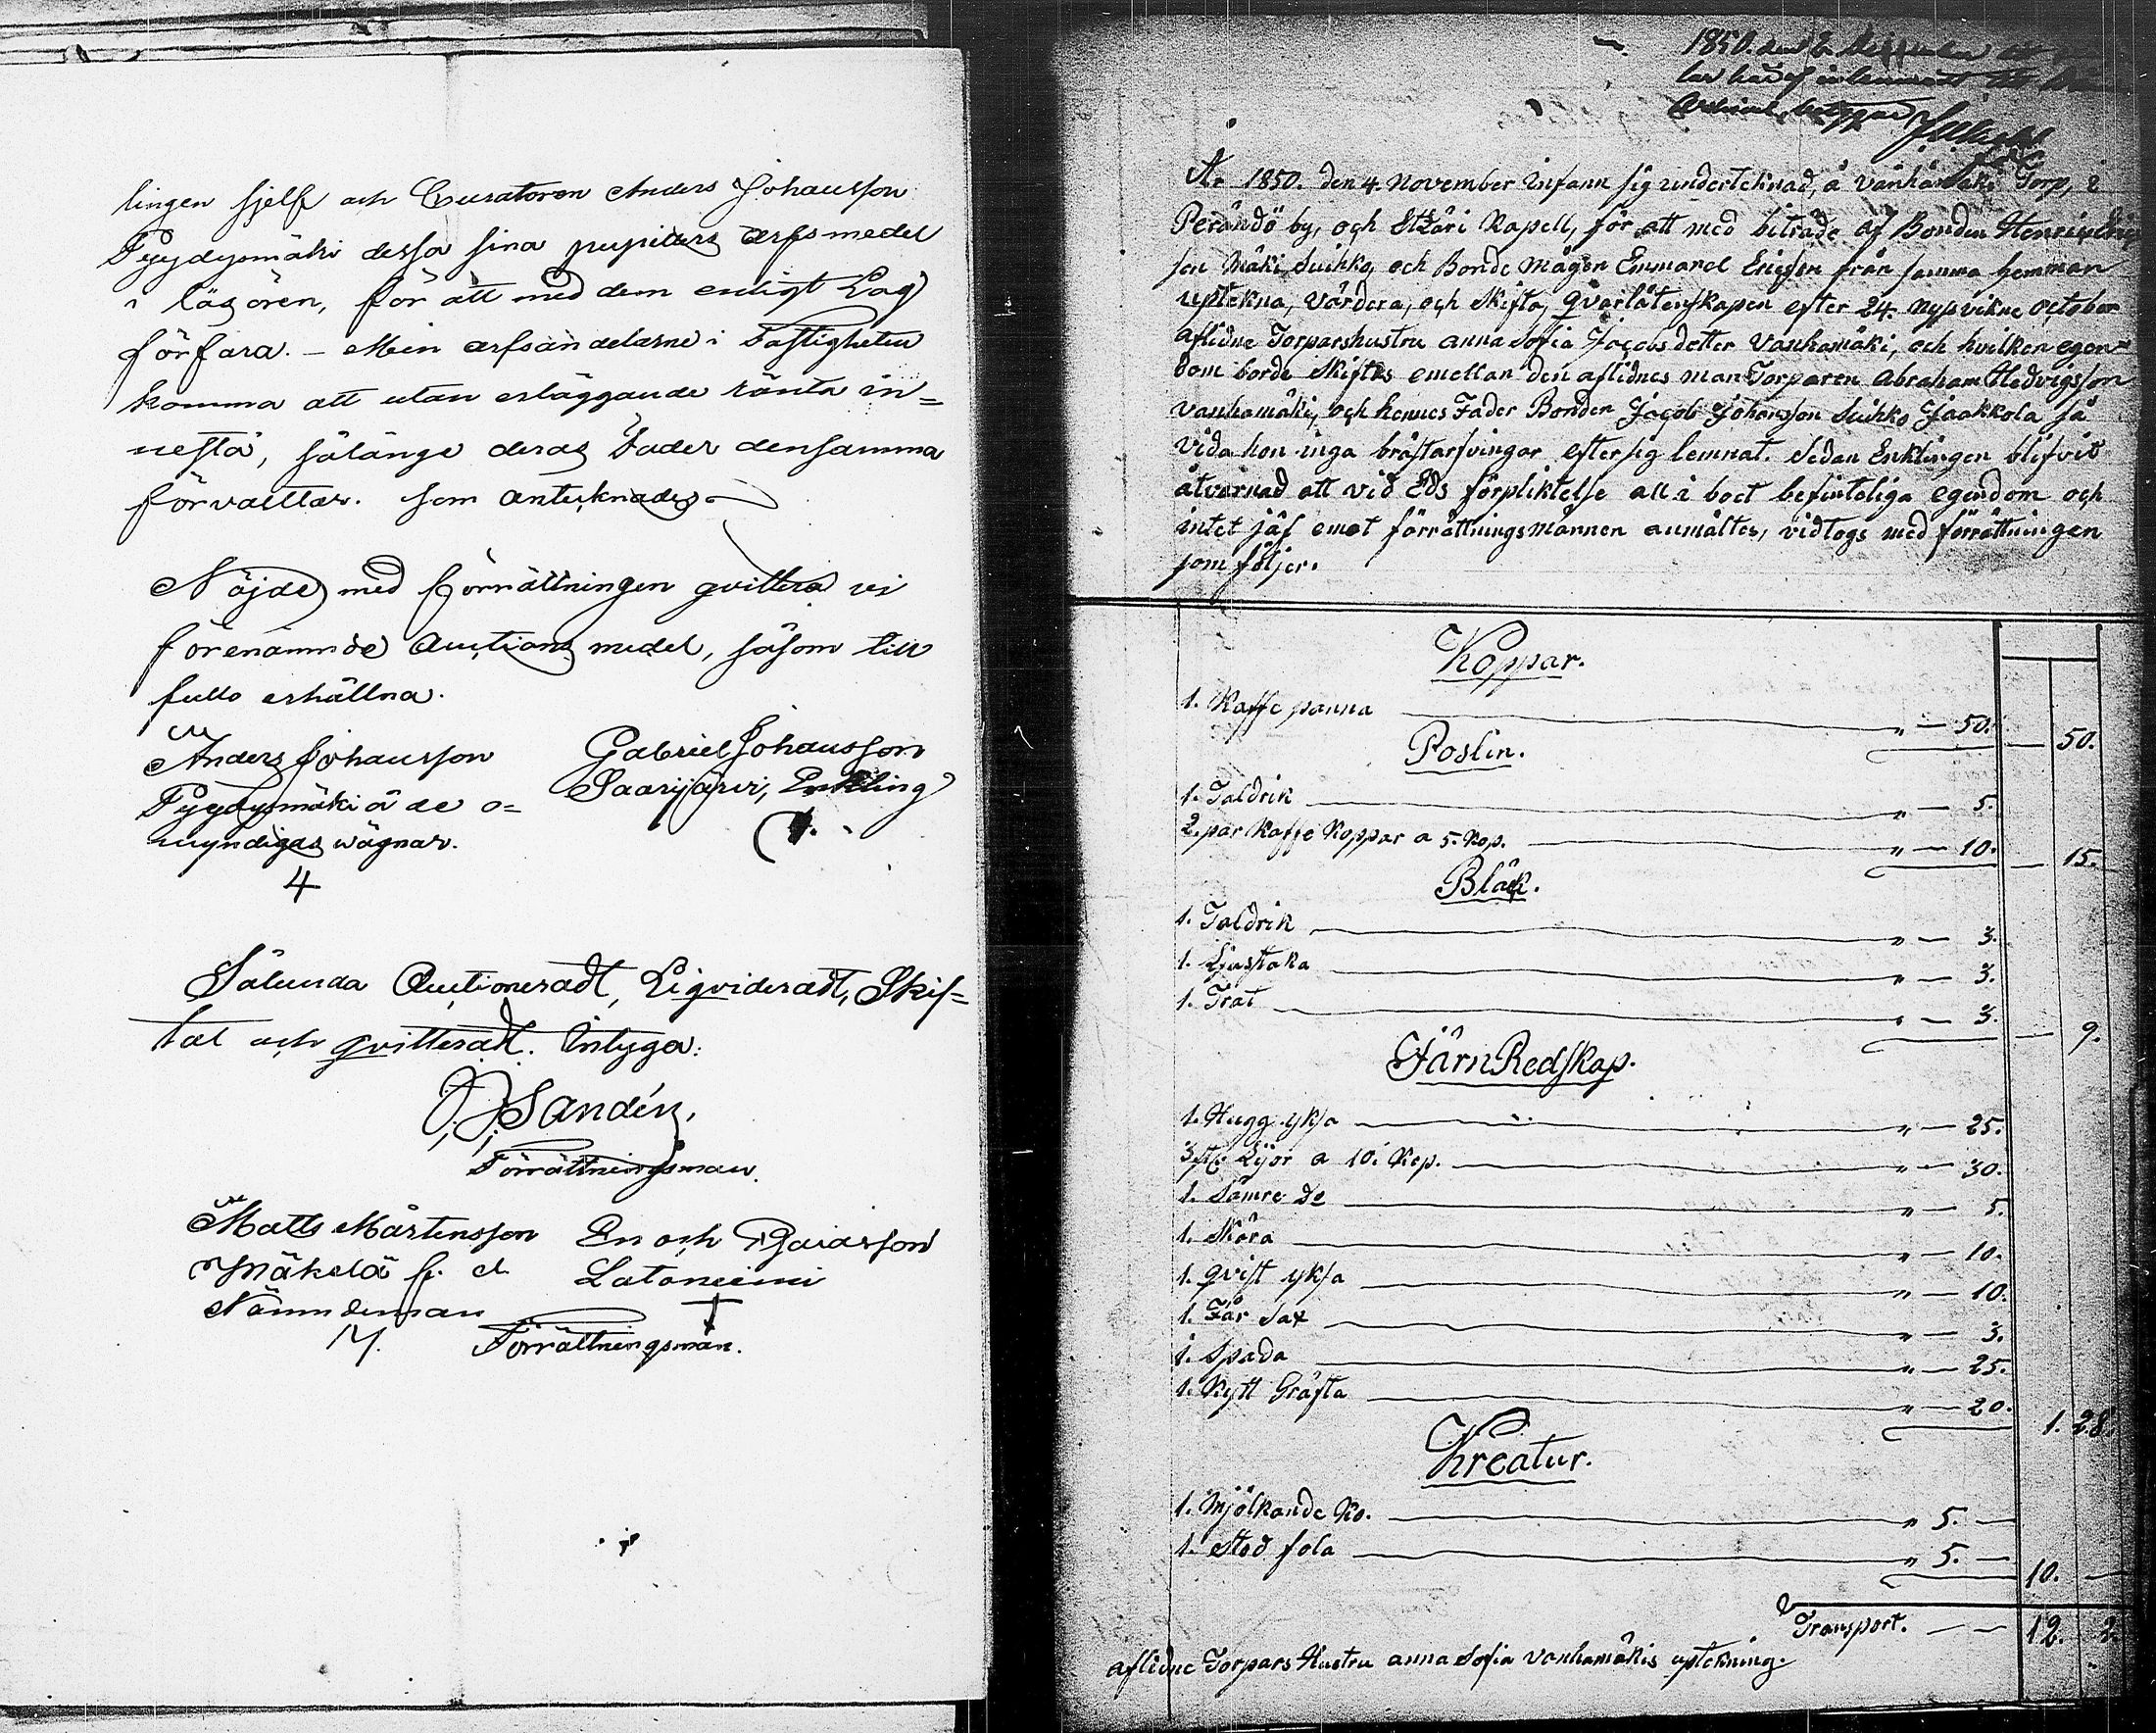 lingen sjelf och Curatoren Anders Johansson
Pyydysmäki dessa sina pupillers arfsmedel
i läsören, för att med dem enligt Lag
förfara. — Men arfsandelarne i Fastigheten
komma att utan erläggande ränta in=
nestå, sålänge deras Fader densamma
förvalttar. som antecknades
Nöjde med förrättningen qvittera vi
förenämnde Auctions medel, såsom till
fullo erhållna.
Anders Johansson
Pyydysmäki å de o=
myndigas wägnar.
4
Gabriel Johansson
Saarijärvi, Enkling
Sålunda Auctioneradt, Liqvideradt, Skif=
tat och qvitteradt. Intyga:
J. J. Sandén,
Förrättningsman.
Matts Mårtensson
Mäkelä f. d.
Nämndeman
Enoch Esaiasson
Lataniemi
Förrättningsmän.
1850. den
År 1850. den 4. November infann sig undertecknad, å Vanhamäki Torp, i
Perändö by, och Etzäri Kapell, för att med biträde af Bonden Henric
son Mäki Suihko, och Bonde Mågen Emmanel Ericsson från samma hemman
uptekna, värdera, och skifta, qvarlåtenskapen efter 24. nypvikne October
aflidne Torparshustru anna Sofia Jacobsdotter Vanhamäki, och hvilken egen=
dom borde Skiftas emellan den aflidnes man Torparen Abraham Hedvigsson
vanhamäki, och hennes Fader Bonden Jacob Johansson Suihko Jaakkola, så
vida hon inga bröstarfvingar efter sig lemnat. Sedan Enklingen blifvit
åtvarnad att vid Eds förpliktelse all i boet befinteliga egendom och
intet jäf emot förrättningsmännen anmältes, vidtogs med förrättningen
som följer.
Koppar.
1. Kaffe panna „ — 50. — 50.
Poslin.
1. Taldrik „ — 5.
2. par Kaffe Koppar a 5. Kop. „ — 10. — 15.
Bläck.
1. Taldrik „ — 3.
1. Ljustaka „ — 3.
1. Trat „ — 3. — 9.
Järn Redskap.
1. Hugg yksa „ — 25.
3. st. Lijor a 10. Kop. „ — 30.
1. Sämre De „ — 5.
1. Skära „ — 10.
1. qvist yksa „ — 10.
1. Får Sax „ — 3.
1. Spada „ — 25.
1. Kytt Gräfta „ — 20. 1. 28.
Kreatur.
1. Mjölkande Ko. „ 5. —
1. Stod fola „ 5. — 10. —
Transport. — — 12. 2.
aflidne Torpars Hustru anna Sofia vanhamäkis uptekning.